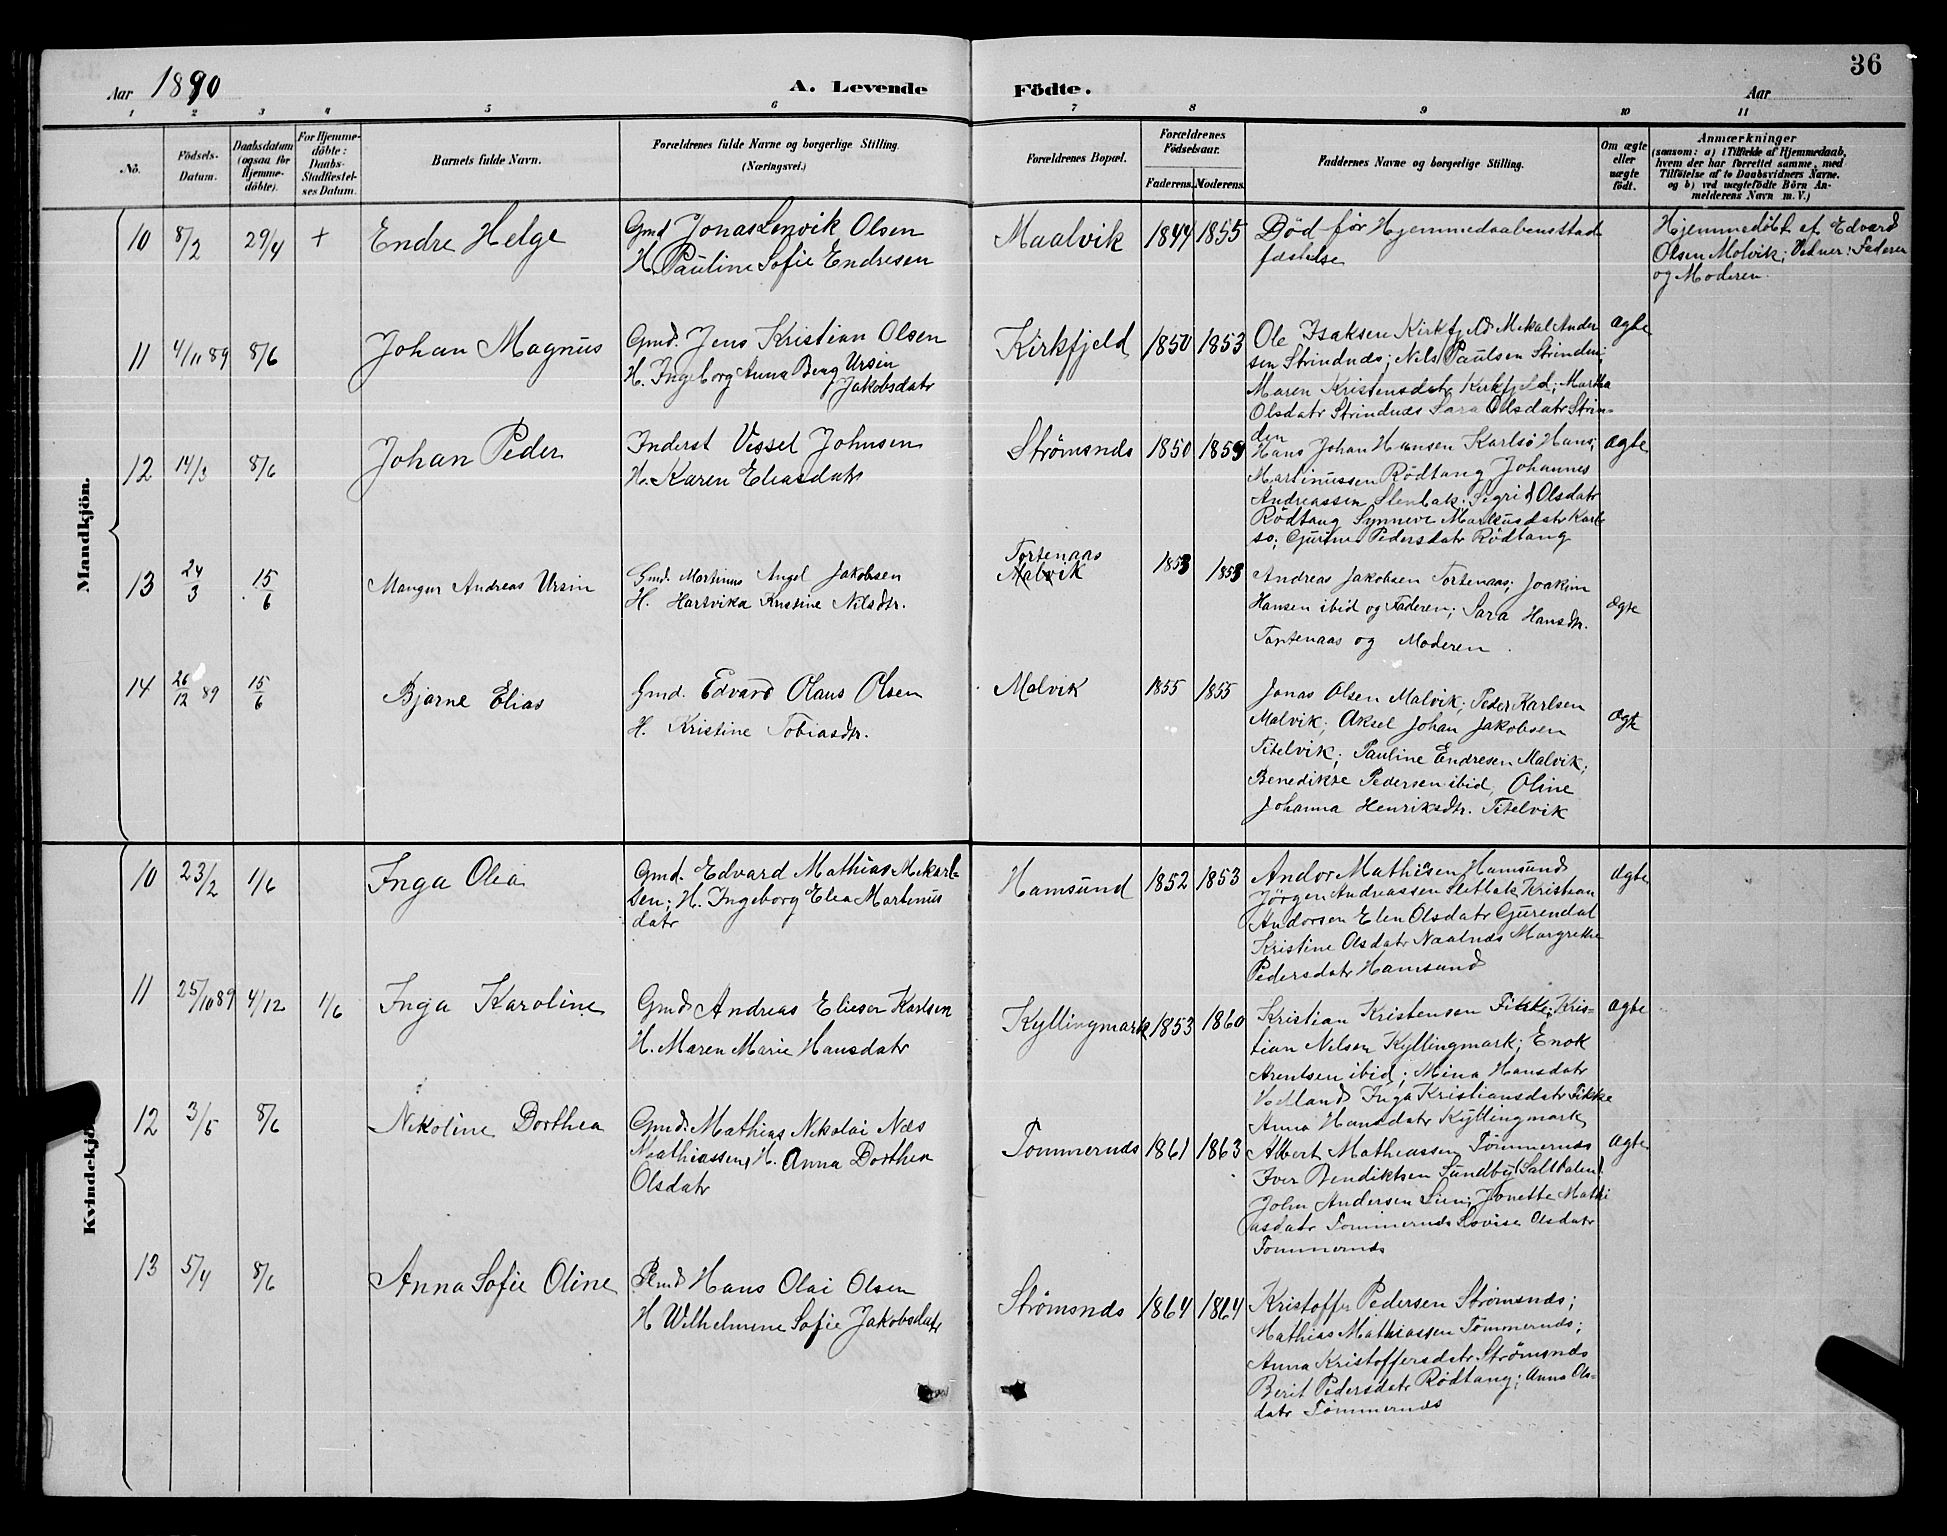 36
Aar 1890 A. Levende Födte. Aar
1 2 3 4 5 6 7 8 9 10 11
No. Födsels-Datum. Daabsdatum (ogsaa for Hjemme-döbte). For Hjemme-döbte: Daabs-Stadfæstel-ses Datum. Barnets fulde Navn. Forældrenes fulde Navne og borgerlige Stilling. (Næringsvei.) Forældrenes Bopæl. Forældrenes Födselsaar. Faderens. Moderens. Faddernes Navne og borgerlige Stilling. Om ægte eller uægte födt. Anmærkninger
(saasom: a) i Tilfælde af Hjemmedaab, hvem der har forrettet samme, med Tilföielse af to Daabsvidners Navne. og b) ved uægtefödte Börn An-melderens Navn m. V.)
Mandkjön.
10 8/2 29/4 + Endre Helge
Gmd Jonas Lenvik Olsen
H. Pauline Sofie Endresen
Maalvik 1844 1855
Död før Hjemmedaabensstad
fæstelse
Hjemmedøbt af Edvard
Olsen Molvik; Vidner: Faderen
og Moderen.
11 4/11 89 8/6 Johan Magnus
Gmd. Jens Kristian Olsen
H. Ingeborg Anna Berg Ursin
Jakobsdatr
Kirkfjeld 1850 1853
Ole Isaksen Kirkfjeld Mekal Ander
sen Strindnæs; Nils Paulsen Strinden;
Maren Kristensdatr Kirkfjeld; Martha
Olsdatr Strindnæs Sara Olsdatr Strin-
den
ægte
12 14/3 8/6 Johan Peder
Inderst Vissel Johnsen
H. Karen Eliasdatr
Strömsnæs 1850 1859
Hans Johan Hansen Karlsö Hans
Martinussen Rödtang Johannes
Andreassen Slenbak; Sigrid Olsdatr
Rödtang Synneve Markusdatr Karl
sö; Gurine Pedersdatr Rödtang
ægte
13 24/3 15/6 Mangur Andreas Ursin
Gmd. Martinus Angel Jakobsen
H. Hartvika Kristine Nilsdtr.
Tortenaas
Malvik
1853 1853
Andreas Jakobsen Tortenaas; Joakim
Hansen ibid og Faderen; Sara Hansdtr.
Tortenaas og Moderen.
Ægte
14 26/12 89 15/6 Bjarne Elias
Gmd. Edvard Olaus Olsen
H. Kristine Tobiasdtr.
Malvik 1855 1855
Jonas Olsen Malvik; Peder Karlsen
Malvik; Aksel Johan Jakobsen
Titelvik; Pauline Endresen Malvik;
Benedikte Pedersen ibid, Oline
Johanna Henriksdtr. Titelvik
Ægte
Kvindekjön
10 23/2 1/6 Inga Olea
Gmd. Edvard Mathias Mekal-
sen; H. Ingeborg Elea Martinus
datr
Hamsund 1852 1853
Andor Mathisen Hamsund
Jörgen Andreassen Sletbak Kristian
Andorsen Elen Olsdatr Gjurendal
Kristine Olsdatr Naalnæs Margrethe
Pedersdatr Hamsund
ægte
11 25/10 89 4/12 1/6 Inga Karoline
Gmd Andreas Elieser Karlsen
H. Maren Marie Hansdatr
Kyllingmark 1853 1860
Kristian Kristensen Fikke; Kris-
tian Nilsen Kyllingmark; Enok
Arentsen ibid; Mina Hansdatr
Vedland Inga Kristiansdatr Fikke
Anna Hansdatr Kyllingmark
ægte
12 3/5 8/6 Nikoline Dorthea
Gmd Mathias Nikolai Næs
Mathiassen, H. Anna Dorthea
Olsdatr
Tømmernæs 1861 1863
Albert Mathiassen Tømmernæs
Iver Bendiktsen Sundby (Saltdalen)
John Andersen Lien; Jonette Mathi
asdatr Tømmernæs Lovise Olsdatr
Tømmernæs
ægte
13 5/4 8/6 Anna Sofie Oline
Plmd Hans Olai Olsen
H Wilhelmine Sofie Jakobsdatr
Strömsnæs 1864 1864
Kristoffer Pedersen Strömsnæs;
Mathias Mathiassen Tömmernæs;
Anna Kristoffersdatr Strömsnæs
Berit Pedersdatr Rödtang; Anna Ols-
datr Tömmernæs